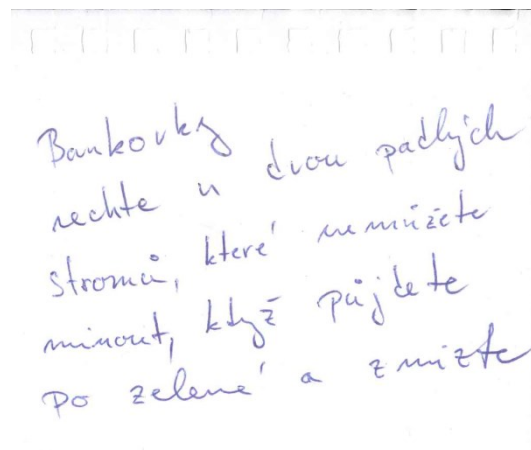 Bankovky
nechte u dvou padlých
stromů, které nemůžete
minout, když půjdete
po zelené a zmizte